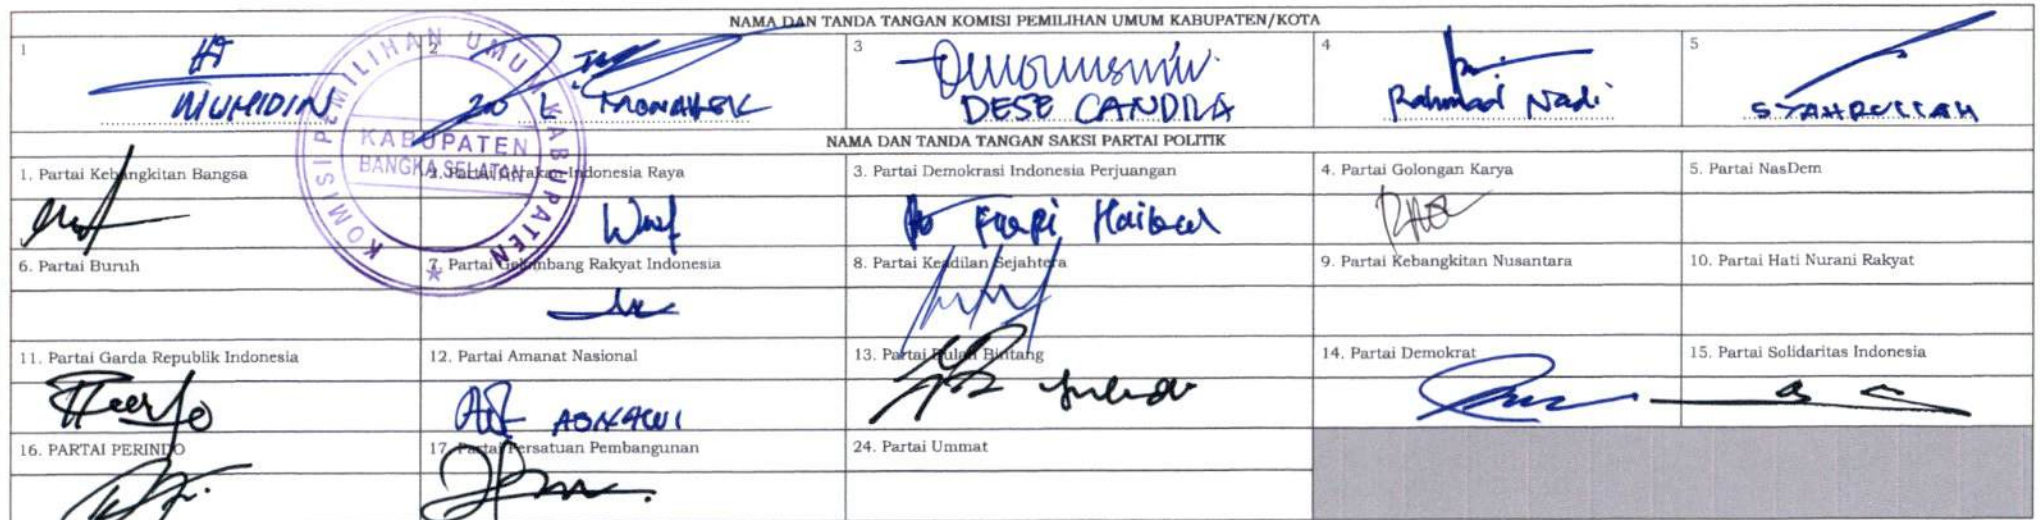 NAMA DAN TANDA TANGAN KOMISI PEMILIHAN UMUM KABUPATEN/KOTA
1 2 3 4 5
MUHIDIN
DESE CANDRA
Rahmad Nadi
SYAHRULLAH
KOMISI PEMILIHAN UMUM KABUPATEN
KABUPATEN
BANGKA SELATAN
NAMA DAN TANDA TANGAN SAKSI PARTAI POLITIK
1. Partai Kebangkitan Bangsa
2. Partai Gerakan Indonesia Raya
3. Partai Demokrasi Indonesia Perjuangan
4. Partai Golongan Karya
5. Partai NasDem
6. Partai Buruh
7. Partai Gelombang Rakyat Indonesia
8. Partai Keadilan Sejahtera
9. Partai Kebangkitan Nusantara
10. Partai Hati Nurani Rakyat
11. Partai Garda Republik Indonesia
12. Partai Amanat Nasional
13. Partai Bulan Bintang
14. Partai Demokrat
15. Partai Solidaritas Indonesia
16. PARTAI PERINDO
17. Partai Persatuan Pembangunan
24. Partai Ummat